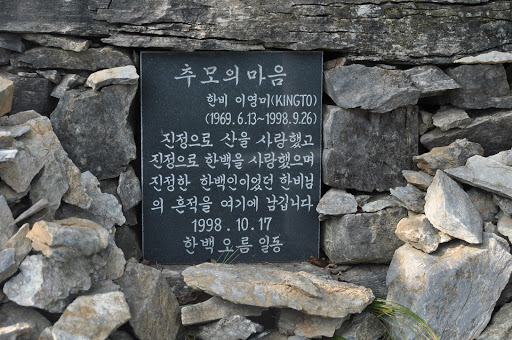 추모의 마음
한비 이영미(KINGTO)
(1969.6.13~1998.9.26)
진정으로 산을 사랑했고
진정으로 한백을 사랑했으며
진정한 한백인이었던 한비님
의 흔적을 여기에 남깁니다
1998.10.17
한백 오름 일동